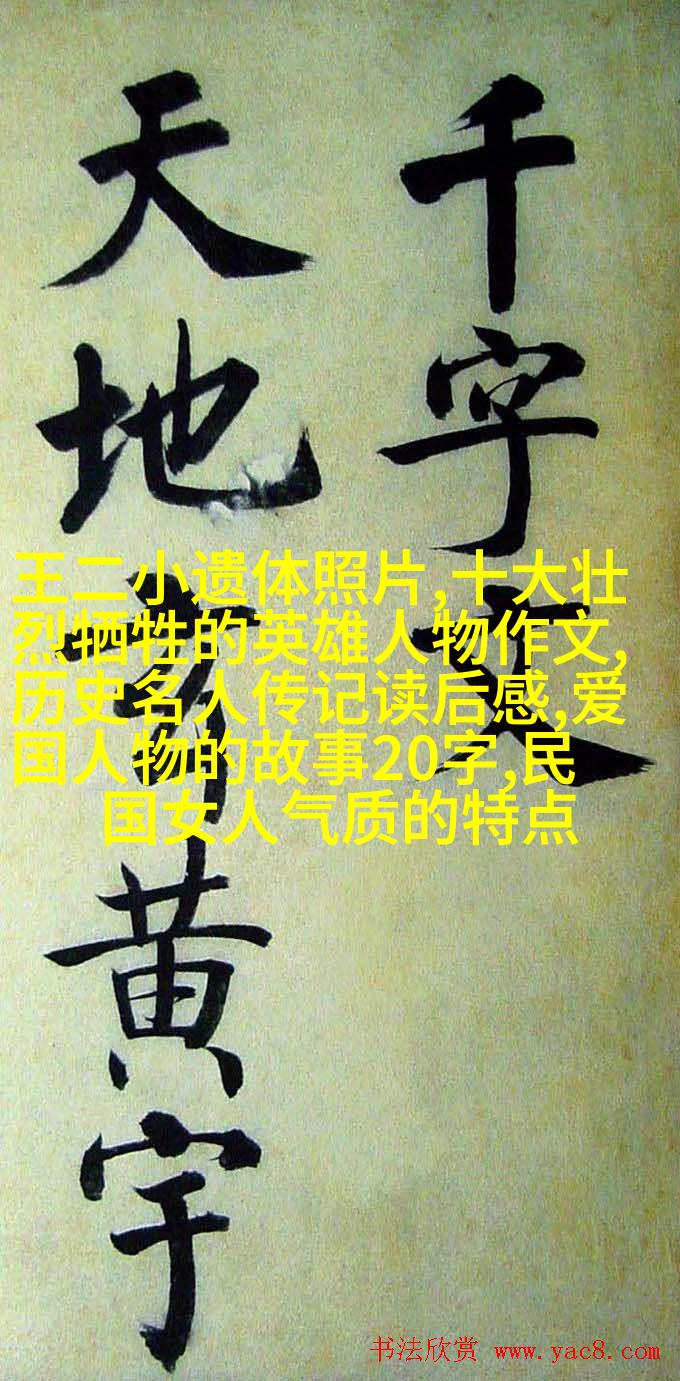 千字文
天地玄黄宇
王二小遗体照片,十大壮
烈牺牲的英雄人物作文,
历史名人传记读后感,爱
国人物的故事20字,民
国女人气质的特点
书法欣赏 www.yac8.com